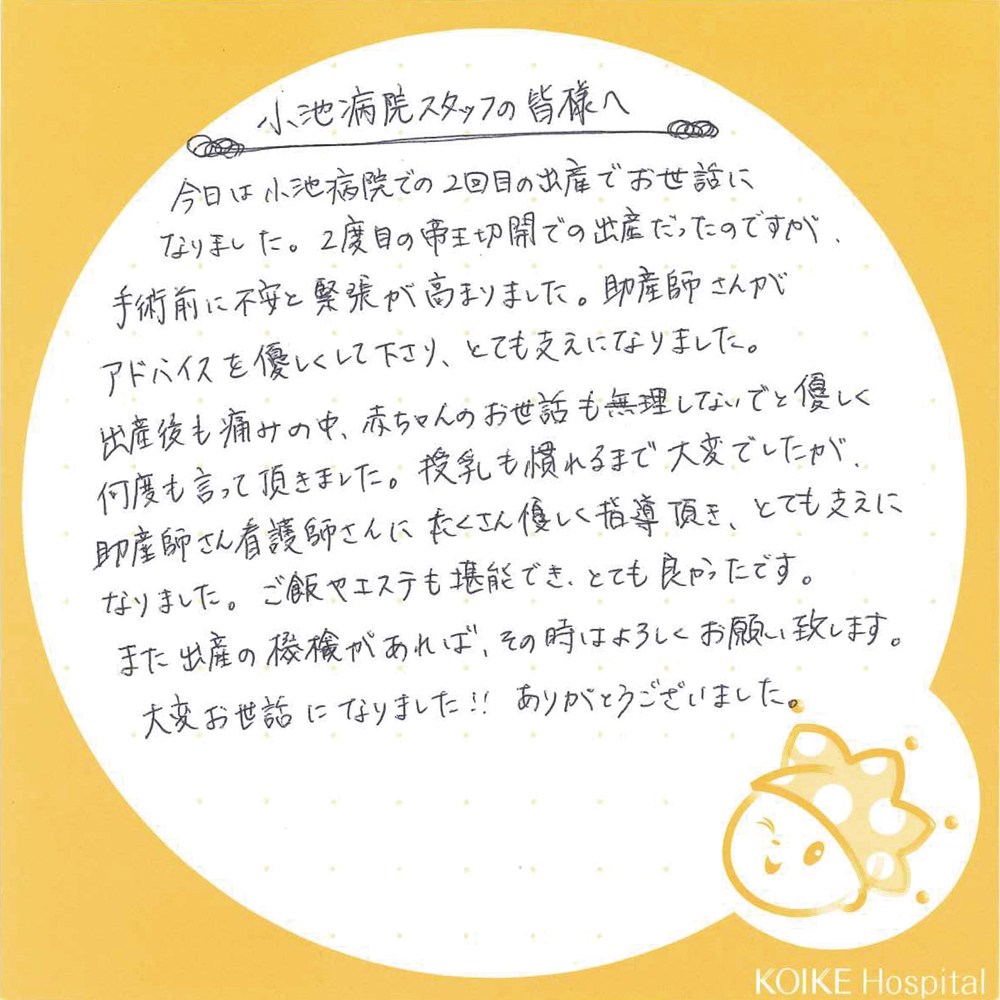 小池病院スタッフの皆様へ
今日は小池病院での2回目の出産でお世話に
なりました。2度目の帝王切開での出産だったのですが、
手術前に不安と緊張が高まりました。助産師さんが
アドバイスを優しくして下さり、とても支えになりました。
出産後も痛みの中、赤ちゃんのお世話も無理しないでと優しく
何度も言って頂きました。授乳も慣れるまで大変でしたが、
助産師さん看護師さんにたくさん優しく指導頂き、とても支えに
なりました。ご飯やエステも堪能でき、とても良かったです。
また出産の機会があれば、その時はよろしくお願い致します。
大変お世話になりました!! ありがとうございました。
KOIKE Hospital